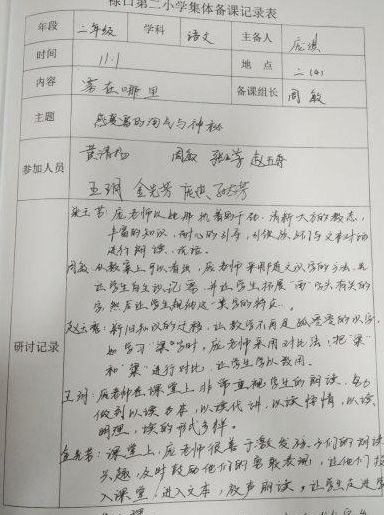 禄口第二小学集体备课记录表
年段 二年级 学科 语文 主备人 庞琪
时间 11.1 地点 二(4)
内容 雾在哪里 备课组长 周敏
主题 感受雾的淘气与神秘
参加人员 黄清杨 周敏 赵五秀
王玥 金光芳
研讨记录
庞老师以她那 清新大方的教态,
丰富的知识,耐心的引导,引领孩子们与文本对话
进行朗读、
周敏:从教案上可以看出,庞老师采用随文识字的方法,先
让学生自主识记雾,并让学生拓展“雨”字头有关的
字,然后让学生归纳这一类字的特点。
新旧知识的迁移,让教学不再是孤零零的识字,
如学习“梁”字时,庞老师采用对比法,把“梁”
和“粱”进行对比,让学生学以致用。
王玥:庞老师在课堂上非常重视学生的朗读,努力
做到以读为本,以读代讲,以读悟情,以读
明理,读的形式多样。
金光芳:课堂上,庞老师很善于激发孩子们的朗读
兴趣,及时鼓励他们的勇敢表现,让他们投
入课堂,进入文本,放声朗读,让学生走进